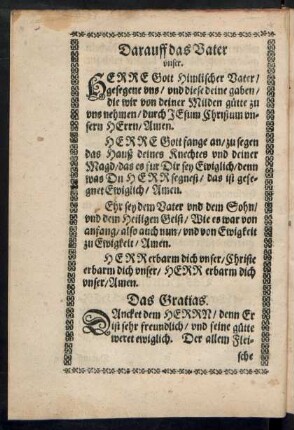 Darauff das Vater
vnser.
HERRE Gott Himlischer Vater /
gesegene vns / vnd diese deine gaben /
die wir von deiner Milden gütte zu
vns nehmen / durch JEsum Chrißum vn-
sern HErrn / Amen.
HERRE Gott fange an / zu segen
das Hauß deines Knechtes vnd deiner
Magd / das es für Dir sey Ewiglich / denn
was Du HERR segnest / das ist gese-
gnet Ewiglich / Amen.
Ehr sey dem Vater vnd dem Sohn /
vnd dem Heiligen Geist / Wie es war von
anfang / also auch nun / vnd von Ewigkeit
zu Ewigkeit / Amen.
HERR erbarm dich vnser / Christe
erbarm dich vnser / HERR erbarm dich
vnser / Amen.
Das Gratias.
DAncket dem HERRN / denn Er
ist sehr freundlich / vnd seine gütte
weret ewiglich. Der allem Flei-
sche